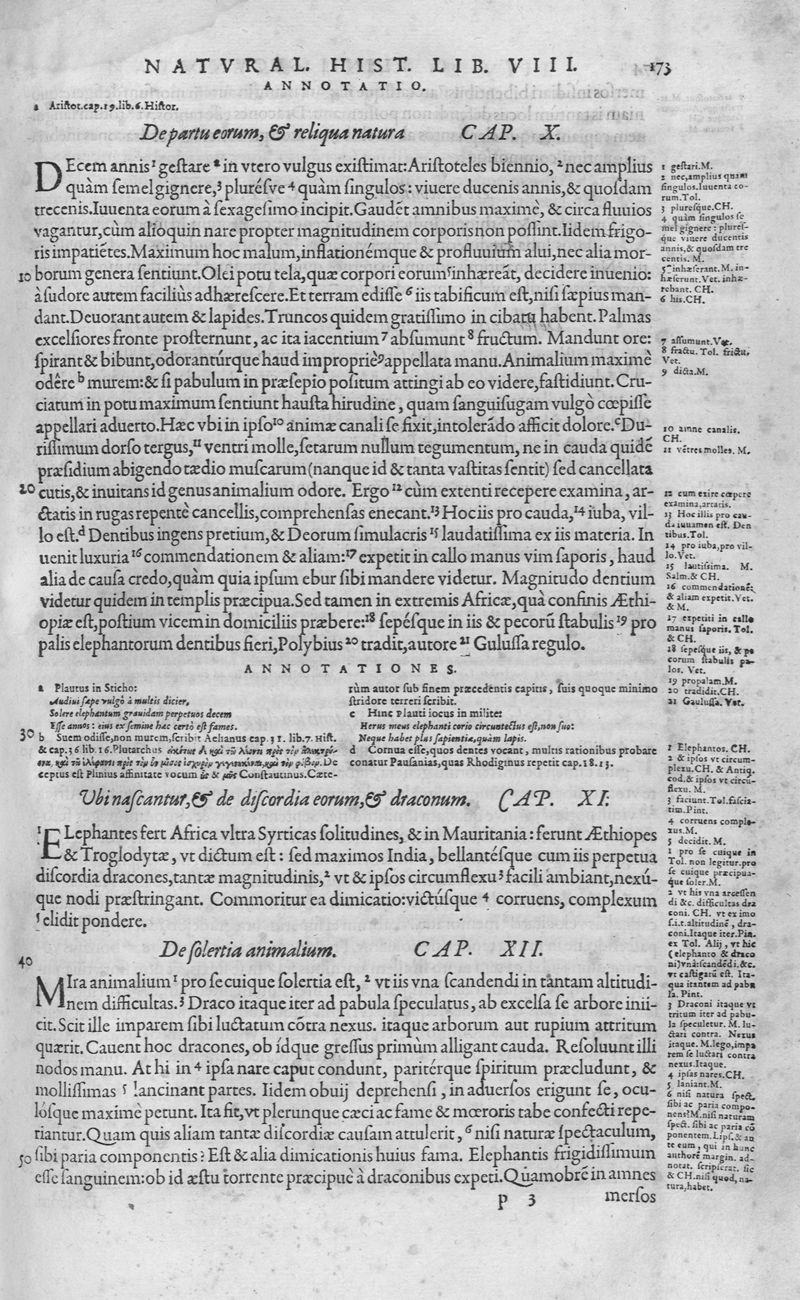 NATVRAL. HIST. LIB. VIII. 173
ANNOTATIO.
a Ariſtot.cap.19.lib.6.Hiſtor.
De partu eorum, & reliqua natura CAP. X.
DEcem annis¹ geſtare ᵃ in vtero vulgus exiſtimat:Ariſtoteles biennio, ² nec amplius
quàm ſemel gignere,³ pluréſve ⁴ quàm ſingulos : viuere ducenis annis,& quoſdam
trecenis.Iuuenta eorum à ſexageſimo incipit.Gaudēt amnibus maximè, & circa fluuios
vagantur,cùm alioquin nare propter magnitudinem corporis non poſſint.Iidem frigo-
ris impatiētes.Maximum hoc malum,inflationémque & profluuium alui,nec alia mor-
10 borum genera ſentiunt.Olei potu tela,quæ corpori eorum⁵inhæreāt, decidere inuenio:
à ſudore autem faciliùs adhæreſcere.Et terram ediſſe ⁶ iis tabificum eſt,niſi ſæpius man-
dant.Deuorant autem & lapides.Truncos quidem gratiſſimo in cibatu habent.Palmas
excelſiores fronte proſternunt, ac ita iacentium⁷ abſumunt⁸ fructum. Mandunt ore:
ſpirant & bibunt,odorantúrque haud impropriè⁹appellata manu.Animalium maximè
odêre ᵇ murem:& ſi pabulum in præſepio poſitum attingi ab eo videre,faſtidiunt. Cru-
ciatum in potu maximum ſentiunt hauſta hirudine, quam ſanguiſugam vulgò cœpiſſe
appellari aduerto.Hæc vbi in ipſo¹⁰ animæ canali ſe fixit,intolerādo afficit dolore.ᶜDu-
riſſimum dorſo tergus,¹¹ ventri molle,ſetarum nullum tegumentum, ne in cauda quidē
præſidium abigendo tædio muſcarum(nanque id & tanta vaſtitas ſentit) ſed cancellata
20 cutis,& inuitans id genus animalium odore. Ergo ¹² cùm extenti recepere examina, ar-
ctatis in rugas repentè cancellis,comprehenſas enecant.¹³ Hoc iis pro cauda,¹⁴ iuba, vil-
lo eſt.ᵈ Dentibus ingens pretium,& Deorum ſimulacris ¹⁵ laudatiſſima ex iis materia. In
uenit luxuria ¹⁶ commendationem & aliam:¹⁷ expetit in callo manus vim ſaporis, haud
alia de cauſa credo,quàm quia ipſum ebur ſibi mandere videtur. Magnitudo dentium
videtur quidem in templis præcipua.Sed tamen in extremis Africæ,quà confinis Æthi-
opiæ eſt,poſtium vicem in domiciliis præbere:¹⁸ ſepéſque in iis & pecorū ſtabulis ¹⁹ pro
palis elephantorum dentibus fieri,Polybius ²⁰ tradit,autore ²¹ Guluſſa regulo.
1 geſtari.M.
2 nec,amplius quam
ſingulos.Iuuenta eo-
rum.Tol.
3 pluréſque.CH.
4 quàm ſingulos ſe
mel gignere : plureſ-
que viuere ducentis
annis,& quoſdam tre
centis. M.
5 inhæſerant.M. in-
hæſerunt.Vet. inhæ-
rebant. CH.
6 his.CH.
7 aſſumunt.Vet.
8 fractu. Tol. frictu,
Vet.
9 dicta.M.
10 amne canalis.
CH.
11 vētres molles. M.
12 cum exire cœpere
examina,arctatis.
13 Hoc illis pro cau-
da iuuamen eſt. Den
tibus.Tol.
14 pro iuba,pro vil-
lo.Vet.
15 lautiſſima. M.
Salm.& CH.
16 commendationē,
& aliam expetit.Vet.
& M.
17 expetiti in callo
manus ſaporis. Tol.
& CH.
18 ſepeſque iis, & pe
corum ſtabulis pa-
los. Vet.
19 propalam.M.
20 tradidit.CH.
21 Gauluſſa. Vet.
ANNOTATIONES.
a Plautus in Sticho:
Audiui ſæpe vulgò à multis dicier,
Solere elephantum grauidam perpetuos decem
Eſſe annos : eius ex ſemine hac certò eſt fames.
30 b Suem odiſſe,non murem,ſcribit Aelianus cap.31. lib.7. Hiſt.
& cap.36 lib.16.Plutarchus
De
ceptus eſt Plinius affinitate vocum ὗς & μῦς Conſtantinus.Cæte-
rùm autor ſub finem præcedentis capitis, ſuis quoque minimo
ſtridore terreri ſcribit.
c Hinc Plauti locus in milite:
Herus meus elephanti corio circuntectus eſt,non ſuo:
Neque habet plus ſapientiæ,quàm lapis.
d Cornua eſſe,quos dentes vocant, multis rationibus probare
conatur Pauſanias,quas Rhodiginus repetit cap.18.13.
Vbi naſcantur,& de diſcordia eorum,& draconum. CAP. XI.
¹ELephantes fert Africa vltra Syrticas ſolitudines, & in Mauritania : ferunt Æthiopes
& Troglodytæ, vt dictum eſt : ſed maximos India, bellantéſque cum iis perpetua
diſcordia dracones,tantæ magnitudinis,² vt & ipſos circumflexu³ facili ambiant,nexú-
que nodi præſtringant. Commoritur ea dimicatio:victúſque ⁴ corruens, complexum
⁵ elidit pondere.
1 Elephantos. CH.
2 & ipſos vt circum-
plexu.CH. & Antiq.
cod.& ipſos vt circū-
flexu. M.
3 faciunt.Tol.faſcia-
tim.Pint.
4 corruens comple-
xus.M.
5 decidit. M.
De ſolertia animalium. CAP. XII.
40
MIra animalium¹ pro ſe cuique ſolertia eſt, ² vt iis vna ſcandendi in tantam altitudi-
nem difficultas.³ Draco itaque iter ad pabula ſpeculatus, ab excelſa ſe arbore inii-
cit.Scit ille imparem ſibi luctatum cōtra nexus. itaque arborum aut rupium attritum
quærit. Cauent hoc dracones, ob ídque greſſus primùm alligant cauda. Reſoluunt illi
nodos manu. At hi in⁴ ipſa nare caput condunt, paritérque ſpiritum præcludunt, &
molliſſimas ⁵ lancinant partes. Iidem obuij deprehenſi, in aduerſos erigunt ſe, ocu-
lóſque maximè petunt. Ita fit,vt plerunque cæci ac fame & mœroris tabe confecti repe-
riantur.Quam quis aliam tantæ diſcordiæ cauſam attulerit, ⁶ niſi naturæ ſpectaculum,
50 ſibi paria componentis? Eſt & alia dimicationis huius fama. Elephantis frigidiſſimum
eſſe ſanguinem:ob id æſtu torrente præcipuè à draconibus expeti.Quamobrē in amnes
1 pro ſe cuique in
Tol. non legitur.pro
ſe cuique præcipua-
que ſoler.M.
2 vt his vna arceſſen
di &c. difficultas dra
coni. CH. vt ex imo
ſ.i.t.altitudinē, dra-
coni.Itaque iter.Pin.
ex Tol. Alij, vt hic
(elephanto & draco
ni)vna:ſcandēdi.&c.
vt caſtigatū eſt. Ita-
qua itantem ad pabu
la. Pint.
3 Draconi itaque vt
tritum iter ad pabu-
la ſpeculetur. M. lu-
ctari contra. Nexus
itaque. M.lego,impa
rem ſe luctari contra
nexus.Itaque.
4 ipſas nares.CH.
5 laniant.M.
6 niſi natura ſpect.
ſibi ac paria compo-
nens?M.niſi naturam
ſpect. ſibi ac paria cō
ponentem.Lipſ.& an
te eum, qui in hunc
authorē margin. ad-
notat. ſcripſerat. ſic
& CH.niſi quod, na-
tura,habet.
p 3 merſos